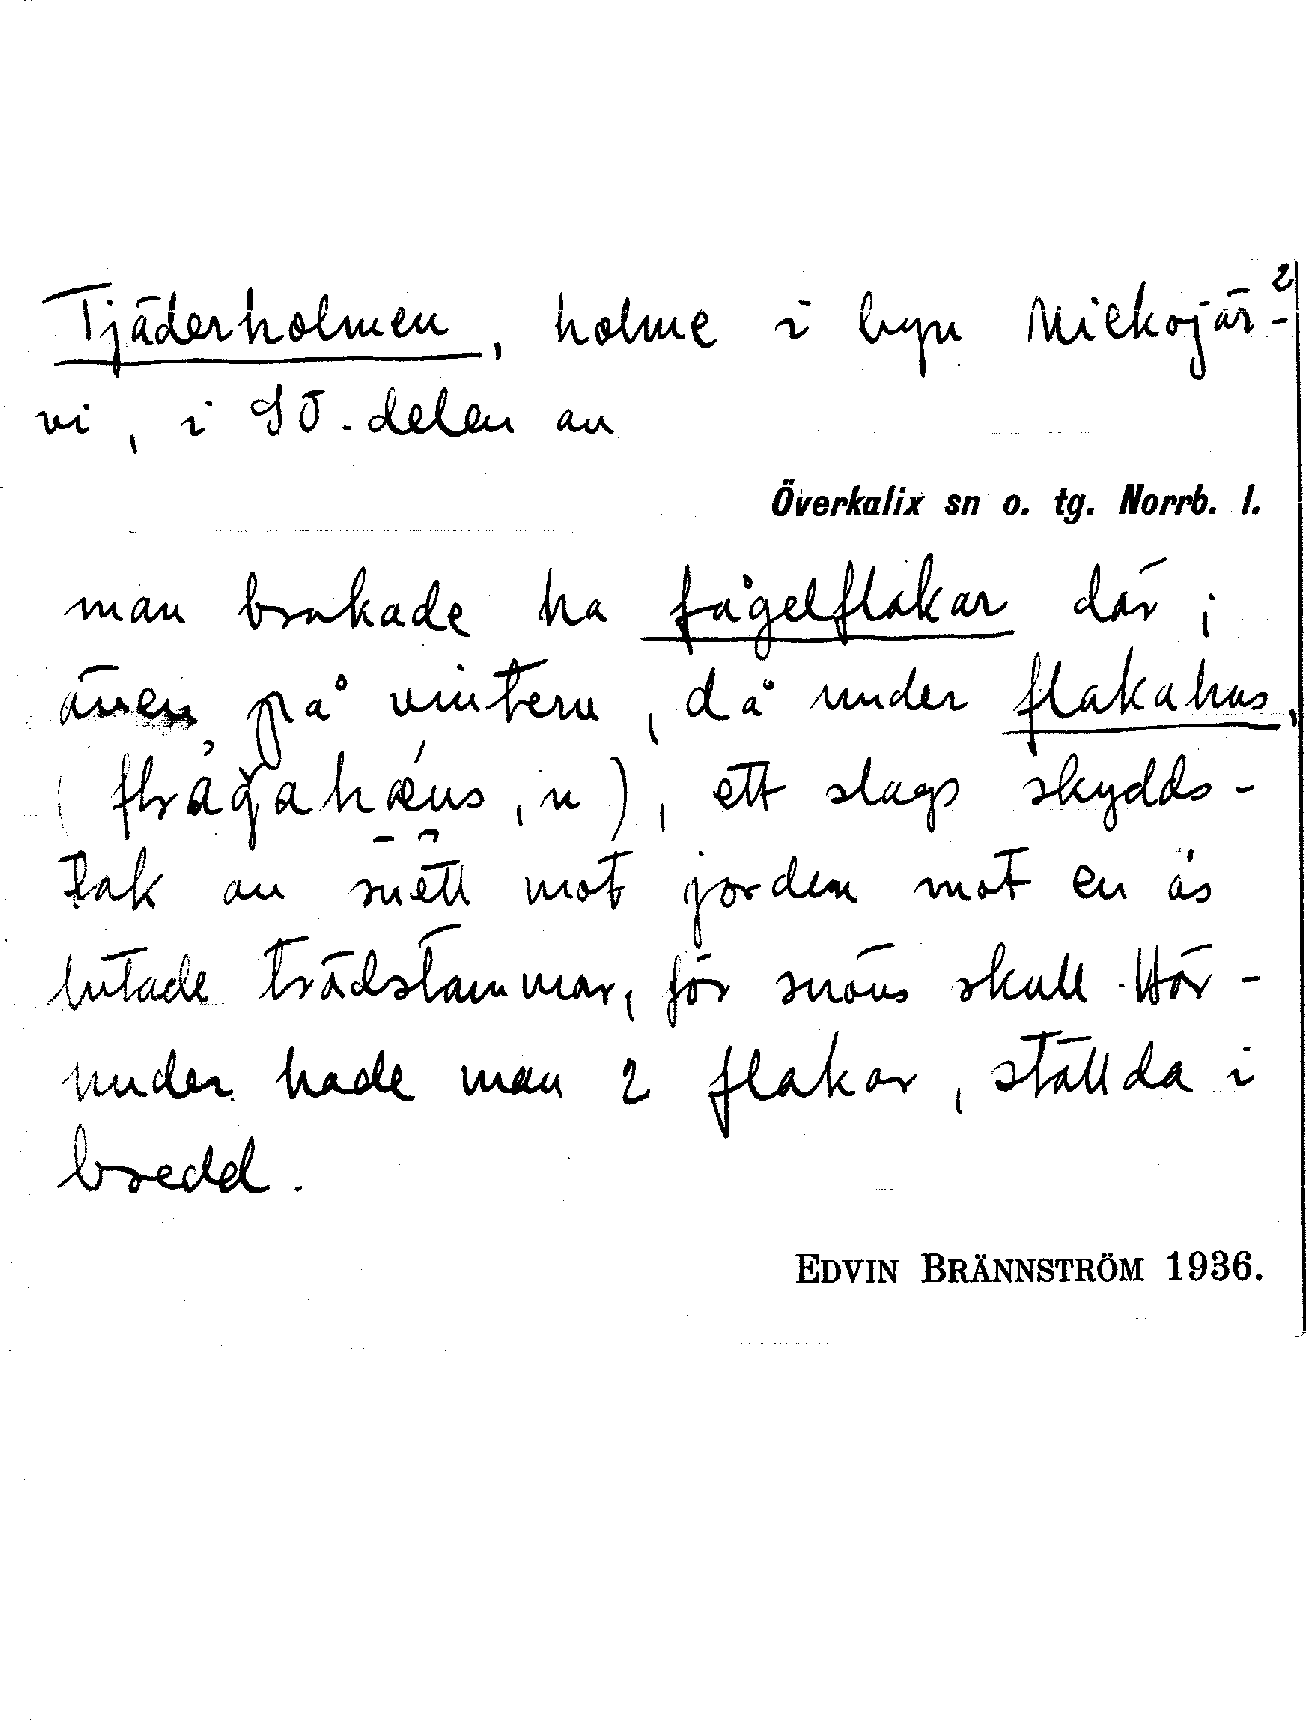 2
Tjäderholmen, holme i byn Miekojär-
vi, i SÖ. delen av
Överkalix sn o. tg. Norrb. l.
man brukade ha fågelflakar där;
även på vintern, då under flakahus,
ett slags skydds-
tak av snett mot jorden mot en ås
lutade trädstammar, för snöns skull. Här-
under hade man 2 flakar, ställda i
bredd.
EDVIN BRÄNNSTRÖM 1936.